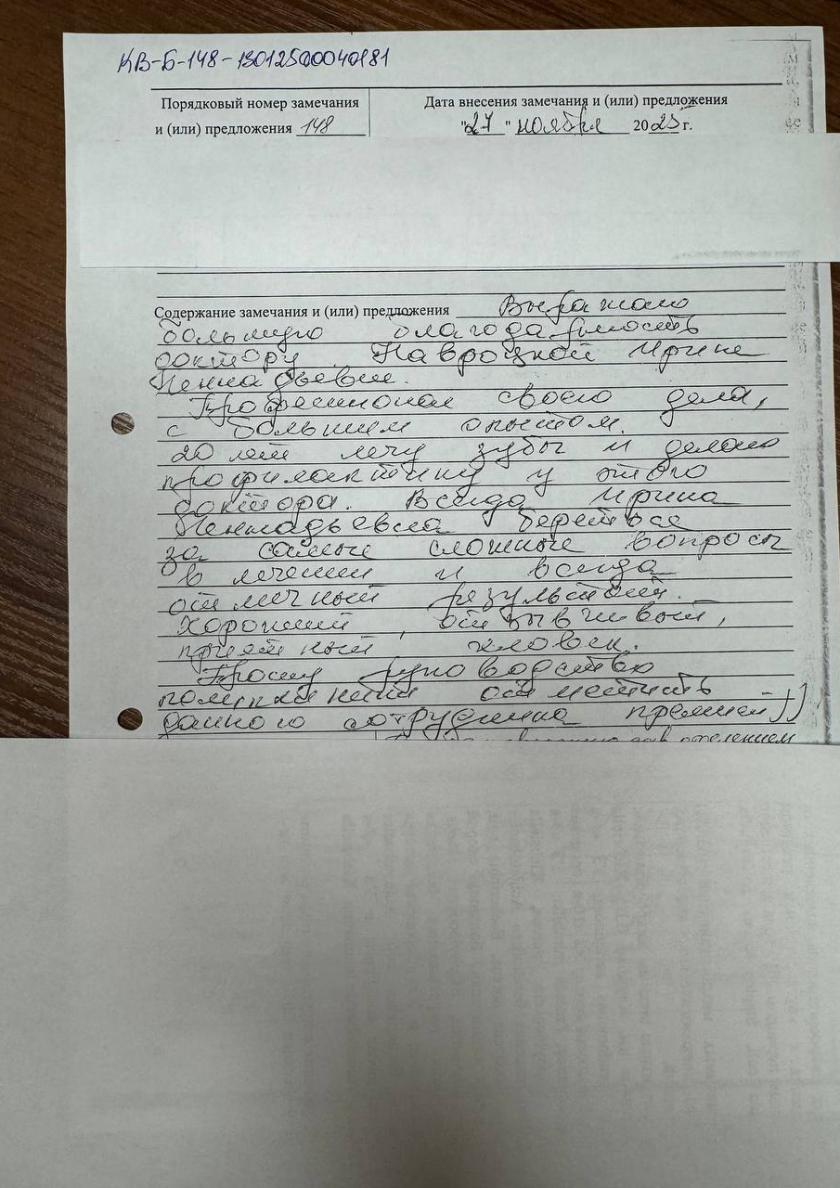 КВ-Б-148-13012500040181
Порядковый номер замечания
и (или) предложения 148
Дата внесения замечания и (или) предложения
"27" ноября 2025 г.
Содержание замечания и (или) предложения Выражаю
большую благодарность
доктору Навроцкой Ирине
Геннадьевне.
Профессионал своего дела,
с большим опытом.
20 лет лечу зубы и делаю
профилактику у этого
доктора. Всегда Ирина
Геннадьевна берется
за самые сложные вопросы
в лечении и всегда
отличный результат.
Хороший, отзывчивый,
приятный человек.
Прошу руководство
поликлиники отметить
данного сотрудника премией))
отделением